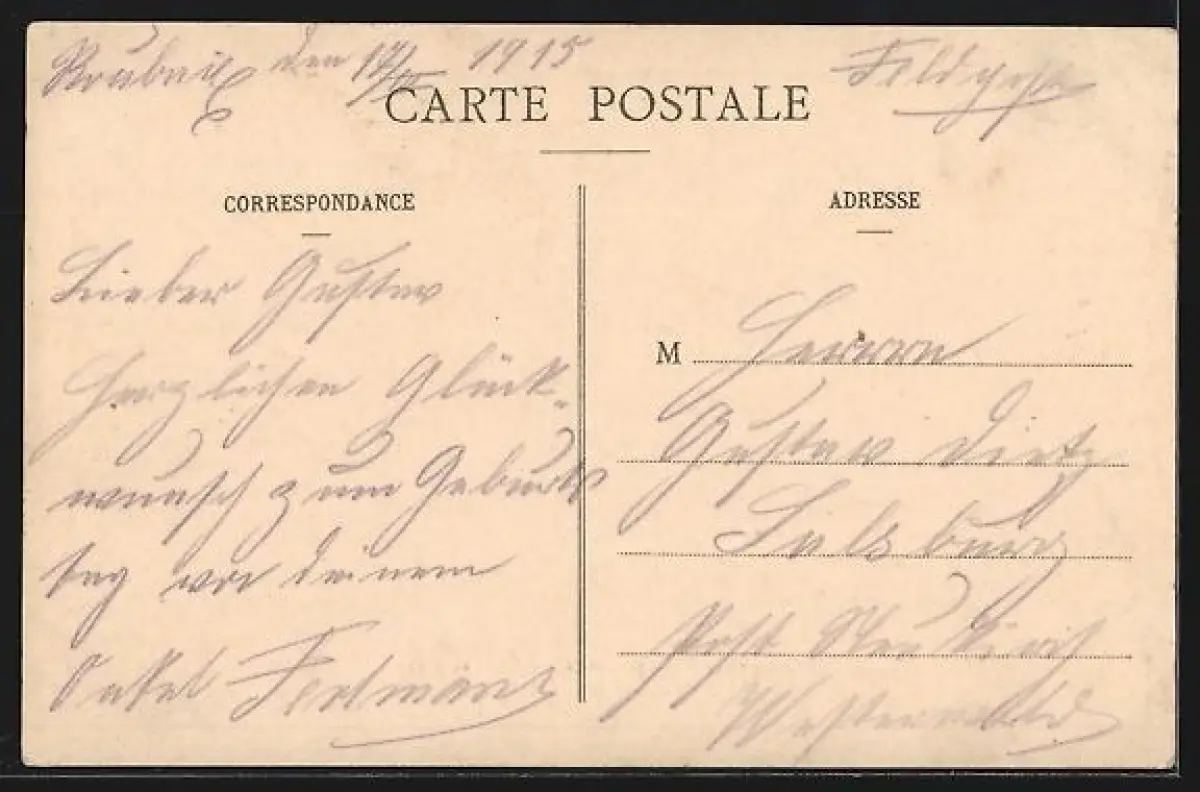 Roubaix den 17/IV 1915
Feldpost
CARTE POSTALE
CORRESPONDANCE
Lieber Gustav
Herzlichen Glück-
wunsch zum Geburts
tag von deinem
Onkel
ADRESSE
M Herrn
Gustav Dietz
Salzburg
Post Neukirch
Westerwald